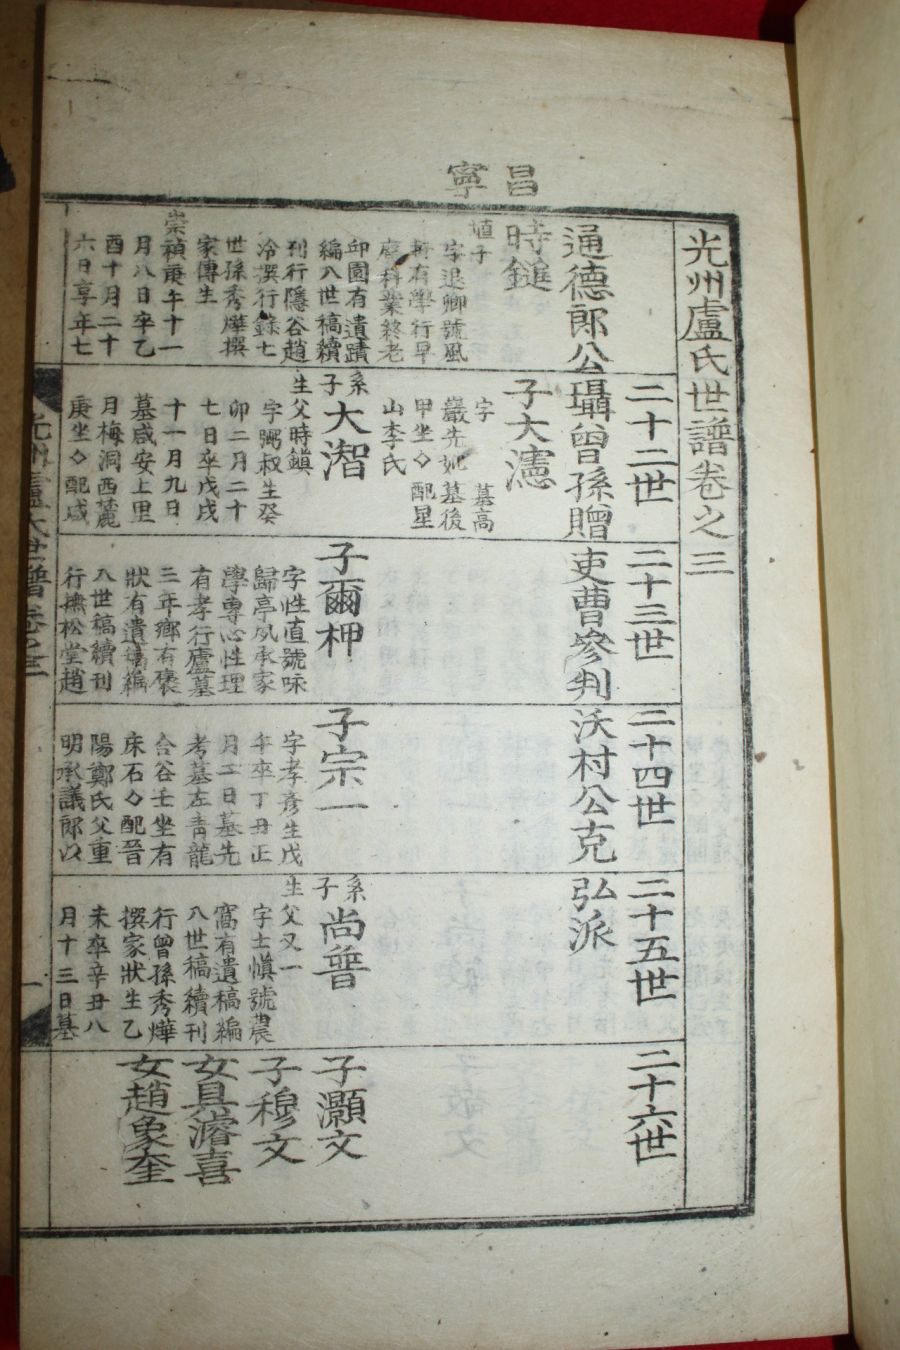 昌寧
光州盧氏世譜卷之三
二十二世
二十三世
二十四世
二十五世
二十六世
通德郎公瑻曾孫贈吏曹參判沃村公克弘派
時鏈
埴子
字退卿號風
有學行早
廢科業終老
邱園有遺蹟
編八世稿續
刊行隱谷趙
冷撰行錄七
世孫秀燁撰
家傳生
崇禎庚午十一
月八日卒乙
酉十月二十
六日享年七
子大濾
字 墓高
巖先妣墓後
甲坐◇配星
山李氏
系子大潪
生父時鎮
字弼叔生癸
卯二月二十
七日卒戊戌
十一月九日
墓咸安上里
月梅洞西麓
庚坐◇配咸
子爾柙
字性直號咏
歸亭夙承家
學專心性理
有孝行廬墓
三年鄉有褒
狀有遺稿編
八世稿續刊
行撫松堂趙
子宗一
字孝彥生戊
年卒丁丑正
月二日墓先
考墓左靑龍
合谷壬坐有
床石◇配晉
陽鄭氏父重
明承議郎以
系子尚普
生父又一
字士愼號農
窩有遺稿編
八世稿續刊
行曾孫秀燁
撰家狀生乙
未卒辛丑八
月十三日墓
子灝文
子穆文
女具濬喜
女趙象奎
光州盧氏世譜卷之三
一